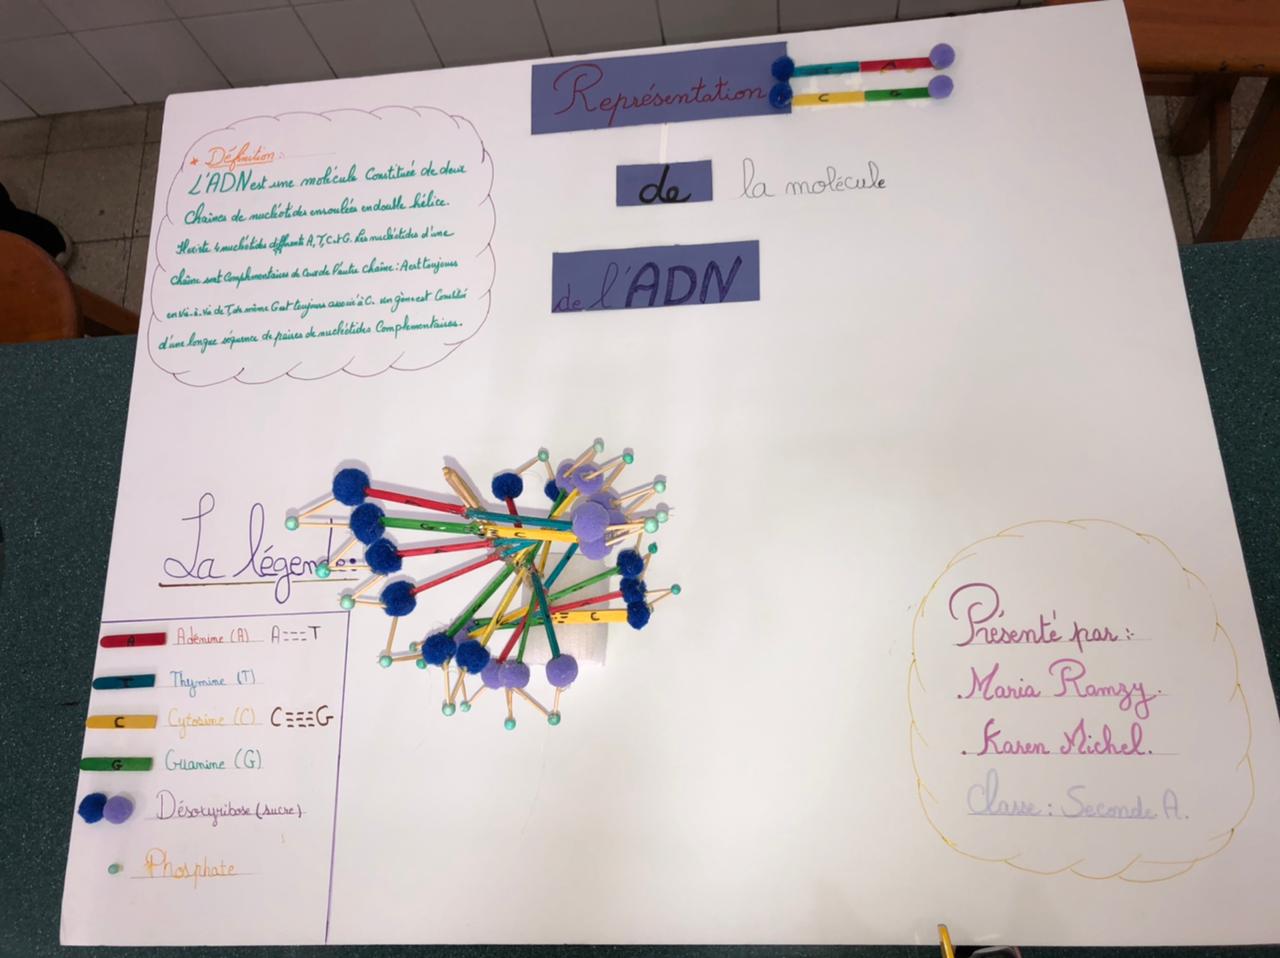 Représentation
T A
C G
de la molécule
de l'ADN
* Définition:
L'ADN est une molécule Constituée de deux
Chaînes de nucléotides enroulées en double hélice.
Il existe 4 nucléotides différents A, T, C et G. Les nucléotides d'une
chaîne sont Complémentaires de Ceux de l'autre chaîne: A est toujours
en vis-à-vis de T, de même G est toujours associé à C. un gène est Constitué
d'une longue séquence de paires de nucléotides Complémentaires.
La légende:
A Adénine (A) A===T
T Thymine (T)
C Cytosine (C) C≡≡≡G
G Guanine (G)
Désoxyribose (sucre)
Phosphate
G = C
= C
Présenté par:
. Maria Ramzy.
. Karen Michel.
Classe: Seconde A.